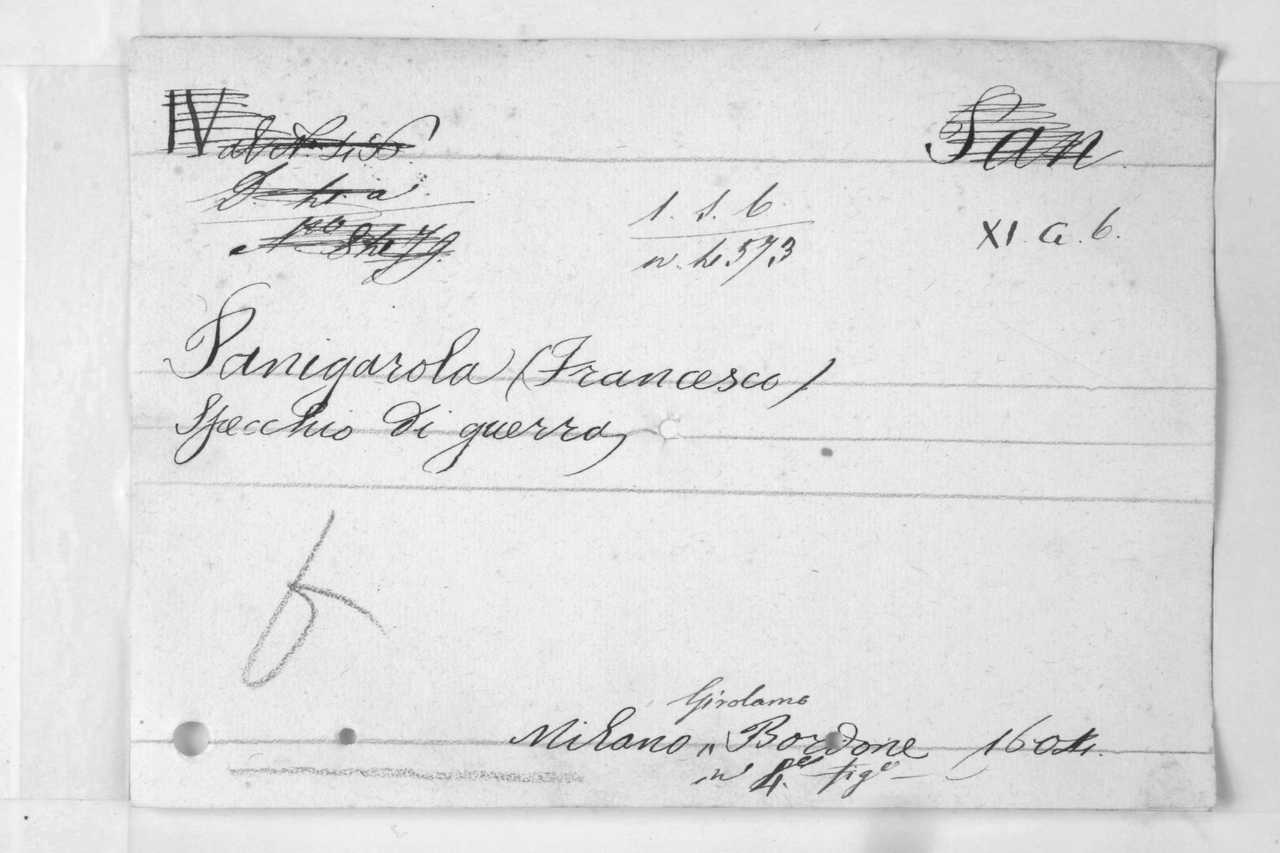 IV
Pan
1. S. 6.
XI. a. 6.
n. 4573
Panigarola (Francesco)
Specchio di guerra
Girolamo
Milano, Bordone 1604.
in 4° fig°